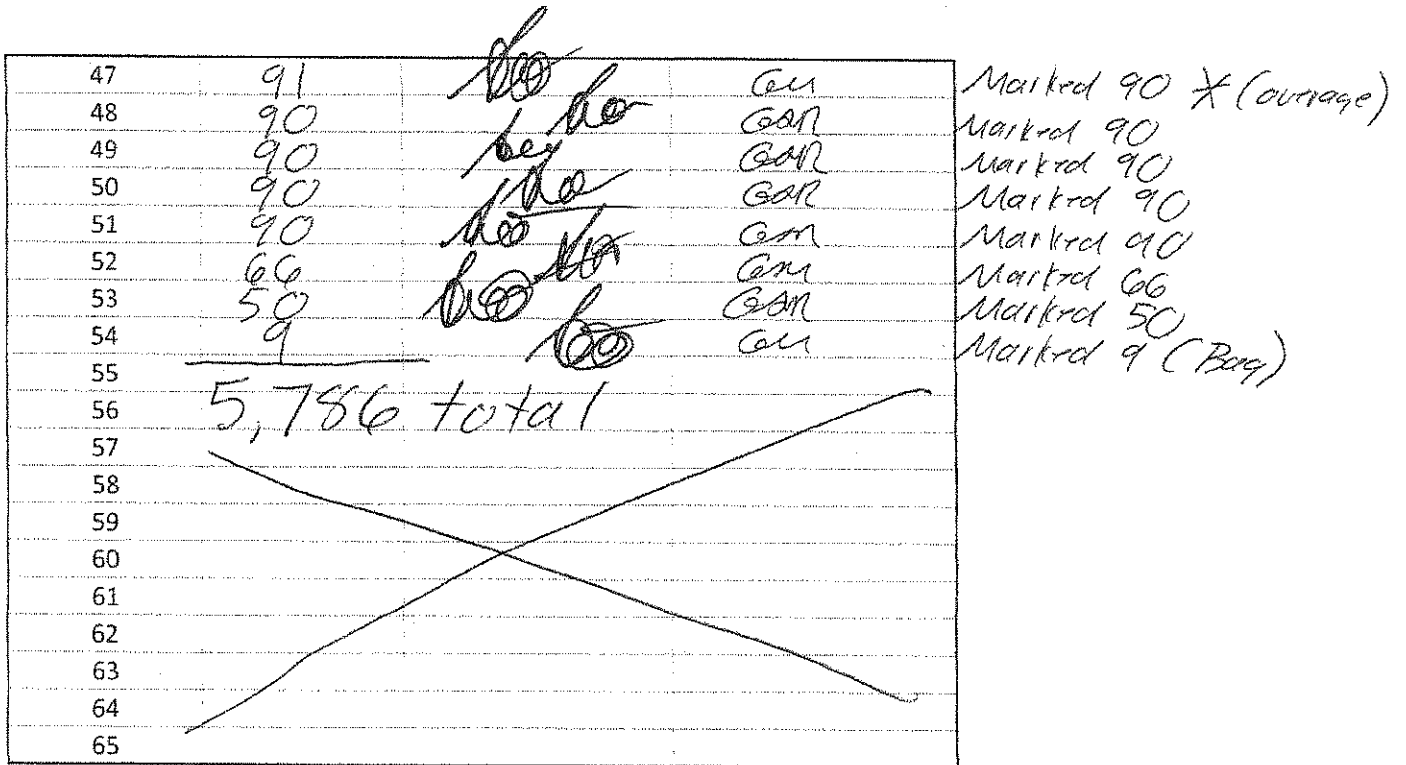 47 91 Marked 90 * (average)
48 90 Marked 90
49 90 Marked 90
50 90 Marked 90
51 90 Marked 90
52 66 Marked 66
53 50 Marked 50
54 9 Marked 9 (Bag)
55
56 5,786 total
57
58
59
60
61
62
63
64
65